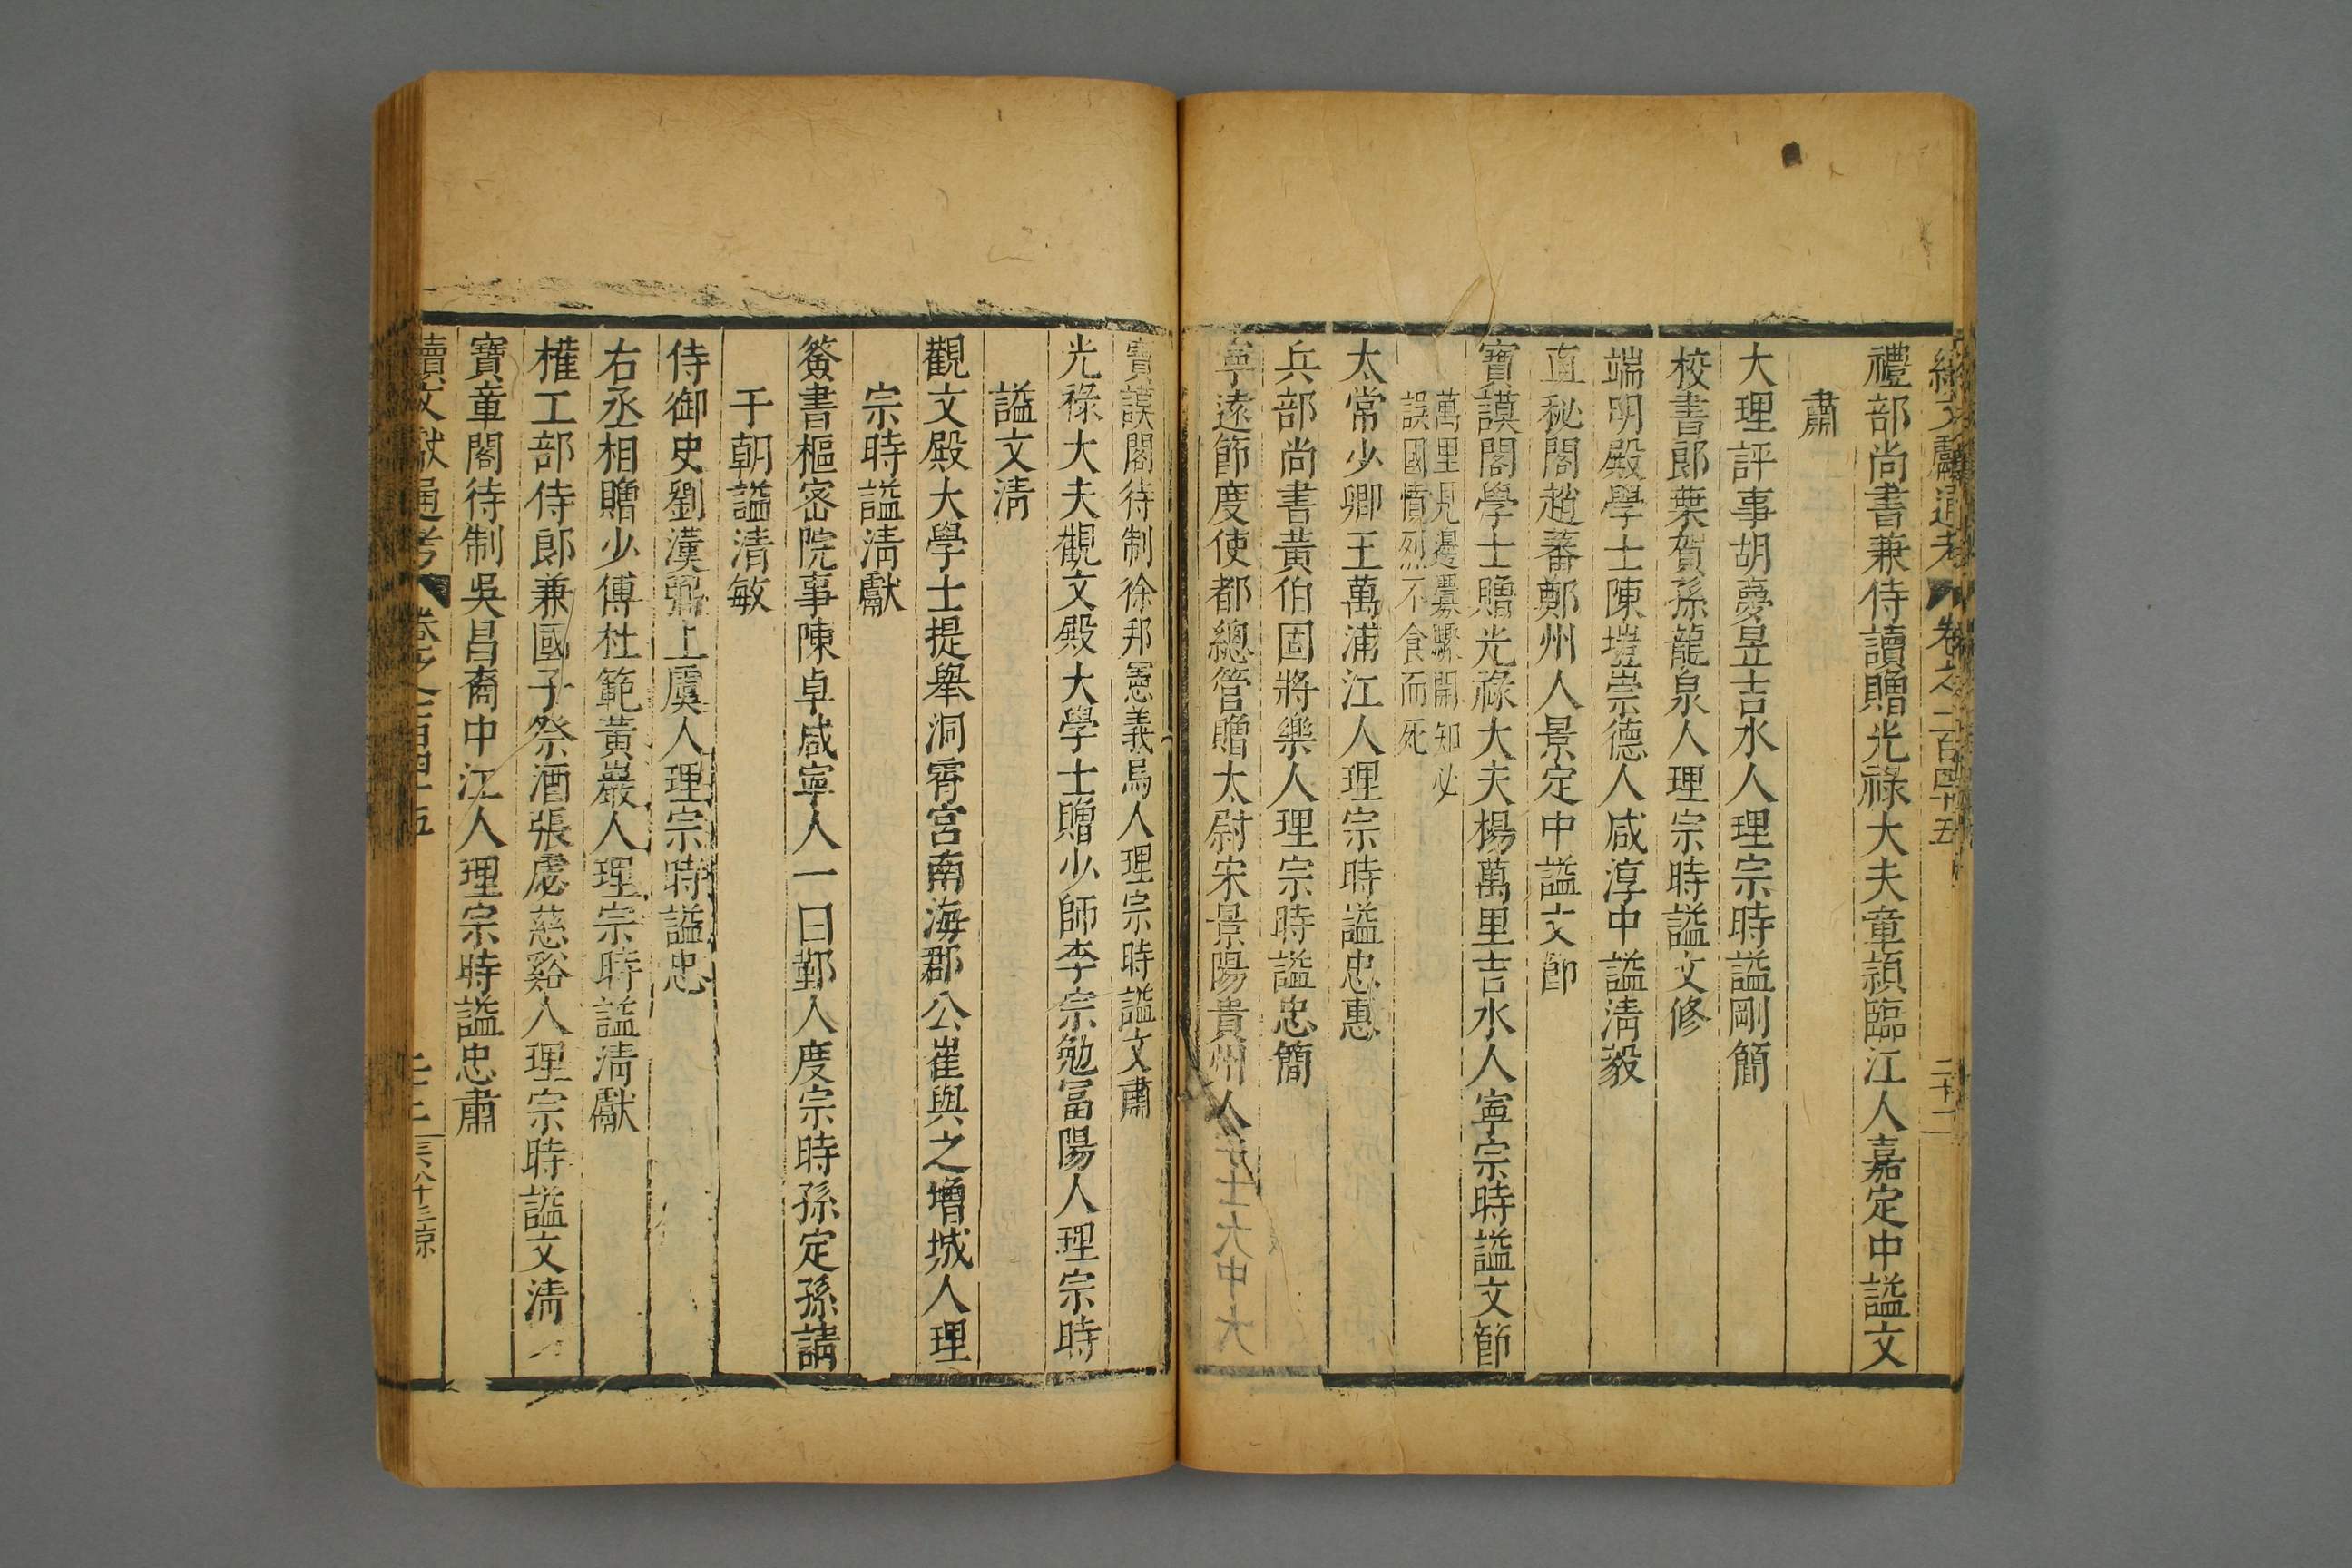 續文獻通考 卷之二百四十五 二十二
禮部尚書兼侍讀贈光祿大夫章穎臨江人嘉定中謚文
肅
大理評事胡夢昱吉水人理宗時謚剛簡
校書郎葉賀孫龍泉人理宗時謚文修
端明殿學士陳塏崇德人咸淳中謚清毅
直秘閣趙蕃鄭州人景定中謚文節
寶謨閣學士贈光祿大夫楊萬里吉水人寧宗時謚文節
萬里見邊釁驟開知必
誤國憤烈不食而死
太常少卿王萬浦江人理宗時謚忠惠
兵部尚書黃伯固將樂人理宗時謚忠簡
寧遠節度使都總管贈太尉宋景陽貴州人
寶謨閣待制徐邦憲義烏人理宗時謚文肅
光祿大夫觀文殿大學士贈少師李宗勉富陽人理宗時
謚文清
觀文殿大學士提舉洞霄宮南海郡公崔與之增城人理
宗時謚清獻
簽書樞密院事陳卓咸寧人一曰鄞人度宗時孫定孫請
于朝謚清敏
侍御史劉漢弼上虞人理宗時謚忠
右丞相贈少傅杜範黃巖人理宗時謚清獻
權工部侍郎兼國子祭酒張虙慈谿人理宗時謚文清
寶章閣待制吳昌裔中江人理宗時謚忠肅
續文獻通考 卷之二百四十五